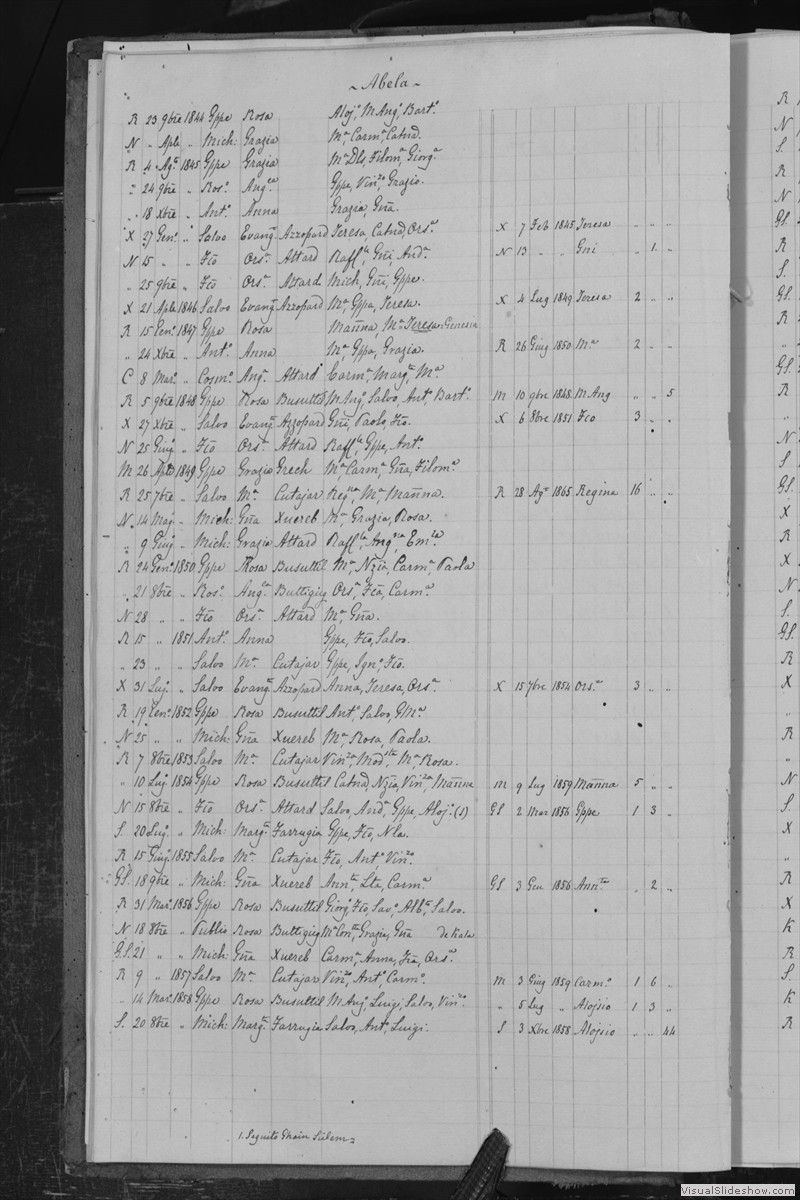 ~ Abela ~
R 23 9bre 1844 Gppe Rosa Aloj.o M Ang.a Bart.o
N „ Aple „ Mich: Grazia M.a Carm.a Catnd.
R 4 Ag.o 1845 Gppe Grazia M.a Dls, Filom.a Giorg.a
„ 24 9bre „ Ros.o Ang.ca Gppe, Vin.zo Grazio.
„ 18 Xbre „ Ant.o Anna Grazia, Gña.
X 27 Gen.o „ Salvo Evang.a Azzopard Teresa, Catnd, Ors.a X 7 Feb 1845 Teresa „ „ „
N 15 „ „ Fco Ors.a Attard Raff.la Gni And.a N 13 „ „ Gni „ 1 „
„ 25 9bre „ Fco Ors.a Attard Mich, Gni, Gppe.
X 21 Aple 1846 Salvo Evang.a Azzopard M.a, Gppa, Teresa. X 4 Lug 1849 Teresa 2 „ „
R 15 Gen.o 1847 Gppe Rosa Mañna, M.a Teresa Genesia
„ 24 Xbre „ Ant.o Anna M.a, Gppa, Grazia. R 26 Giug 1850 M.a 2 „ „
C 8 Mar.o „ Cosm.o Ang.a Attard Carm.a Marg.a M.a
R 5 9bre 1848 Gppe Rosa Busuttil M Ang.a Salvo, Ant.o Bart.o M 10 9bre 1848 M Ang „ „ 5
X 27 Xbre „ Salvo Evang.a Azzopard Gni, Paolo, Fco. X 6 8bre 1851 Fco 3 „ „
N 25 Giug „ Fco Ors.a Attard Raff.le, Gppe, Ant.o
M 26 Aple 1849 Gppe Grazia Grech M.a Carm.a Gña, Filom.a
R 25 7bre „ Salvo M.a Cutajar Reg.na M.a Mañna. R 28 Ag.o 1865 Regina 16 „ „
N 14 Mag „ Mich: Gña Xuereb M.a, Grazia, Rosa.
„ 9 Giug „ Mich: Grazia Attard Raff.la Ang.ca Em.la
R 24 Gen.o 1850 Gppe Rosa Busuttil M.a Nzia, Carm.a Paola
„ 21 8bre „ Ros.o Ang.ca Buttigieg Ors.a, Fca, Carm.a
N 28 „ „ Fco Ors.a Attard M.a, Gña.
R 15 „ 1851 Ant.o Anna Gppe, Fco, Salvo.
„ 23 „ „ Salvo M.a Cutajar Gppe, Ign.o Fco.
X 31 Lug „ Salvo Evang.a Azzopard Anna, Teresa, Ors.a X 15 7bre 1854 Ors.a 3 „ „
R 19 Gen.o 1852 Gppe Rosa Busuttil Ant.o Salvo, G M.a
N 25 „ „ Mich: Gña Xuereb M.a, Rosa, Paola.
R 7 8bre 1853 Salvo M.a Cutajar Vin.za Mod.sta M.a Rosa.
„ 10 Lug 1854 Gppe Rosa Busuttil Catnd, Nzia, Vin.za Mañna M 9 Lug 1859 Mañna 5 „ „
N 15 8bre „ Fco Ors.a Attard Salvo, And.a, Gppe, Aloj.o (1) GS 2 Mar 1856 Gppe 1 3 „
S. 20 Lug „ Mich: Marg.a Farrugia Gppe, Fco, Nla.
R 15 Giug 1855 Salvo M.a Cutajar Fco, Ant.o Vin.zo
GS. 18 9bre „ Mich: Gña Xuereb Ann.ta, Lta, Carm.a GS 3 Gen 1856 Ann.ta „ 2 „
R 31 Mar.o 1856 Gppe Rosa Busuttil Giorg.o Fco, Sav.o, Alb.to, Salvo.
N 18 8bre „ Publio Rosa Buttigieg M.a Con.ta Grazia, Gña de Kala
GS. 21 „ „ Mich: Gña Xuereb Carm.a, Anna, Fca, Ors.a
R 9 „ 1857 Salvo M.a Cutajar Vin.zo, Ant.o, Carm.o M 3 Giug 1859 Carm.o 1 6 „
„ 14 Mar.o 1858 Gppe Rosa Busuttil M Ang.o Luigi, Salvo, Vin.zo „ 5 Lug „ Alojsio 1 3 „
S. 20 8bre „ Mich: Marg.a Farrugia Salvo, Ant.o, Luigi. S 3 Xbre 1858 Alojsio „ „ 44
1. Seguito Ghain Sielem
VisualSlideshow.com